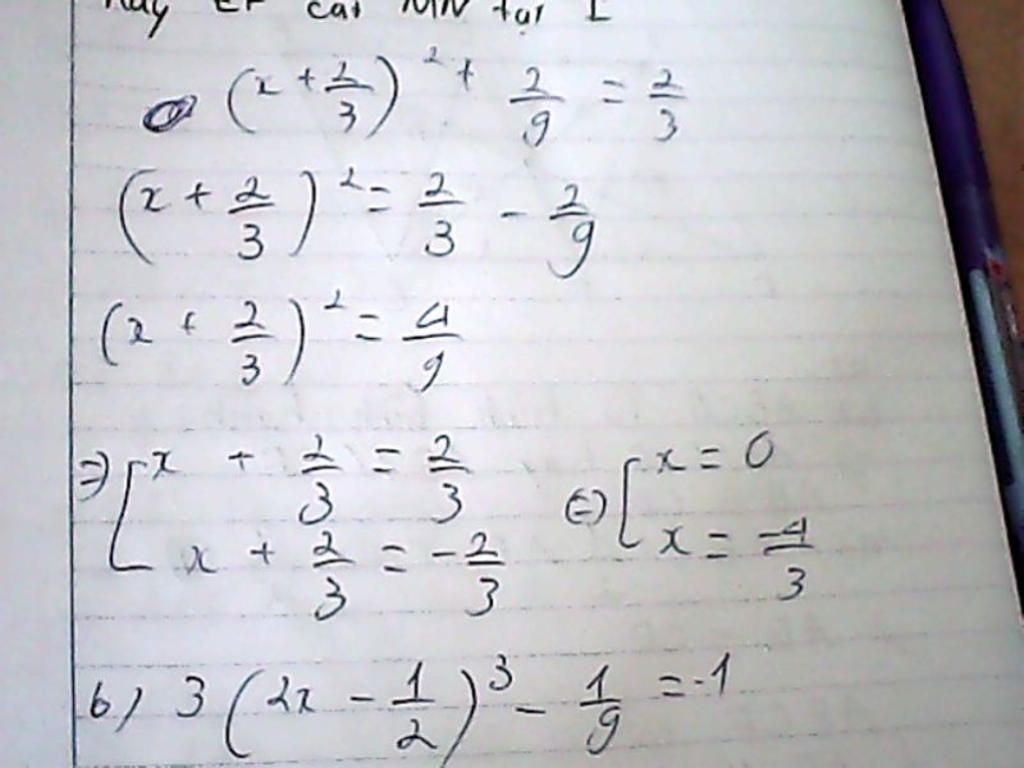 EF cat MN tại I
(x + 2/3)² + 2/9 = 2/3
(x + 2/3)² = 2/3 - 2/9
(x + 2/3)² = 4/9
=> [ x + 2/3 = 2/3 (=) [ x = 0
x + 2/3 = -2/3 x = -4/3
b) 3(2x - 1/2)³ - 1/9 = -1